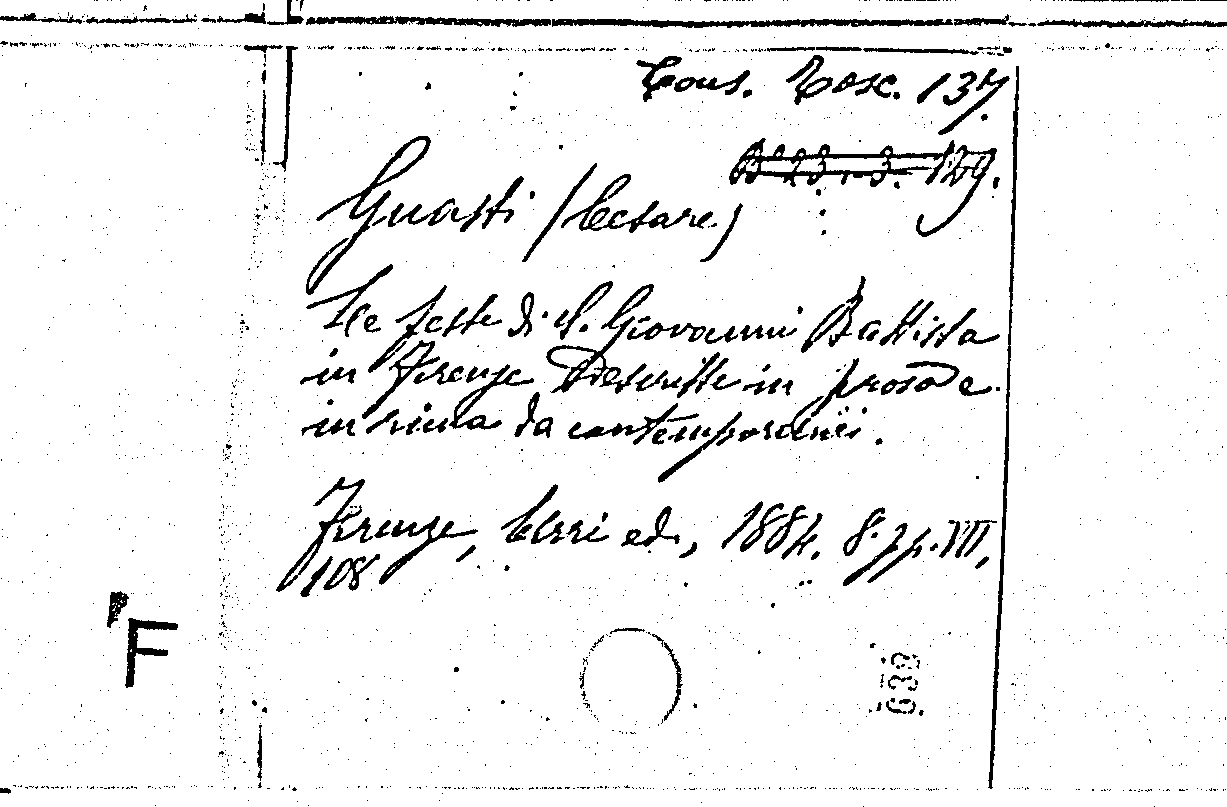 Cons. Tosc. 137.
B° 23. 3. 129.
Guasti (Cesare)
Le feste di S. Giovanni Battista
in Firenze Descritte in prosa e
in rima da contemporanei.
Firenze, ed., 1884. 8. pp. VIII,
108
F
639